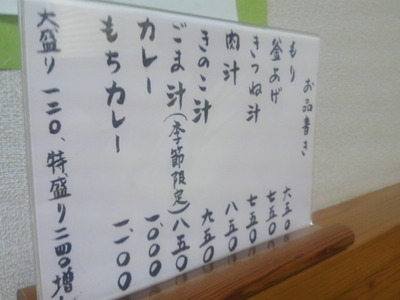 お品書き
もり 六五〇
釜あげ 七五〇
きつね汁 七五〇
肉汁 八五〇
きのこ汁 九五〇
ごま汁(季節限定)八五〇
カレー 一、〇〇〇
もちカレー 一、一〇〇
大盛り一二〇、特盛り二四〇増